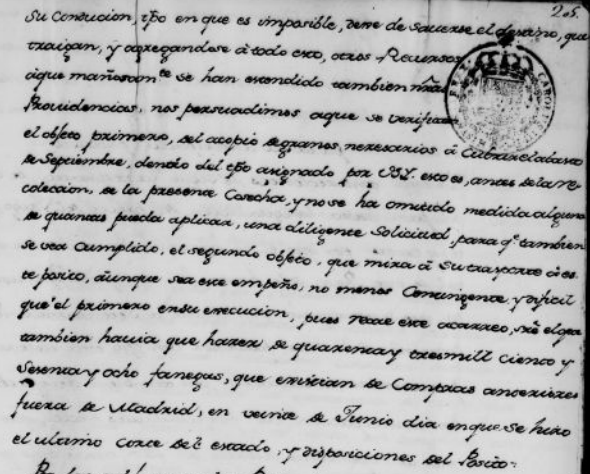 205.
su conducion, tpo en que es imposible, deve de saverse el destino, que
traigan, y agregandose à todo esto, otros Recursos
àque mañosamte se han estendido tambien nras
Providencias, nos persuadimos aque se verifica
el objeto primero, del acopio de granos neresarios à Cubrir el abasto
de Septiembre, dentro del tpo asignado por V.S.Y. esto es, antes de la re-
coleccion, de la presente Cosecha, y no se ha omitido medida alguna
de quantas pueda aplicar, una diligente Solicitud, para qe. tambien
se vea Cumplido, el segundo objeto, que mira à su trasporte à es-
te posito, aunque sea este empeño, no menos Contingente, y dificil
que el primero en su execucion, pues recae este acarreo, sre el que
tambien havia que hazer de quarenta y tres mill ciento y
sesenta y ocho fanegas, que existian de Compras anteriores
fuera de Madrid, en veinte de Junio dia en que se hizo
el ultimo Corte del estado, y disposiciones del Posito: